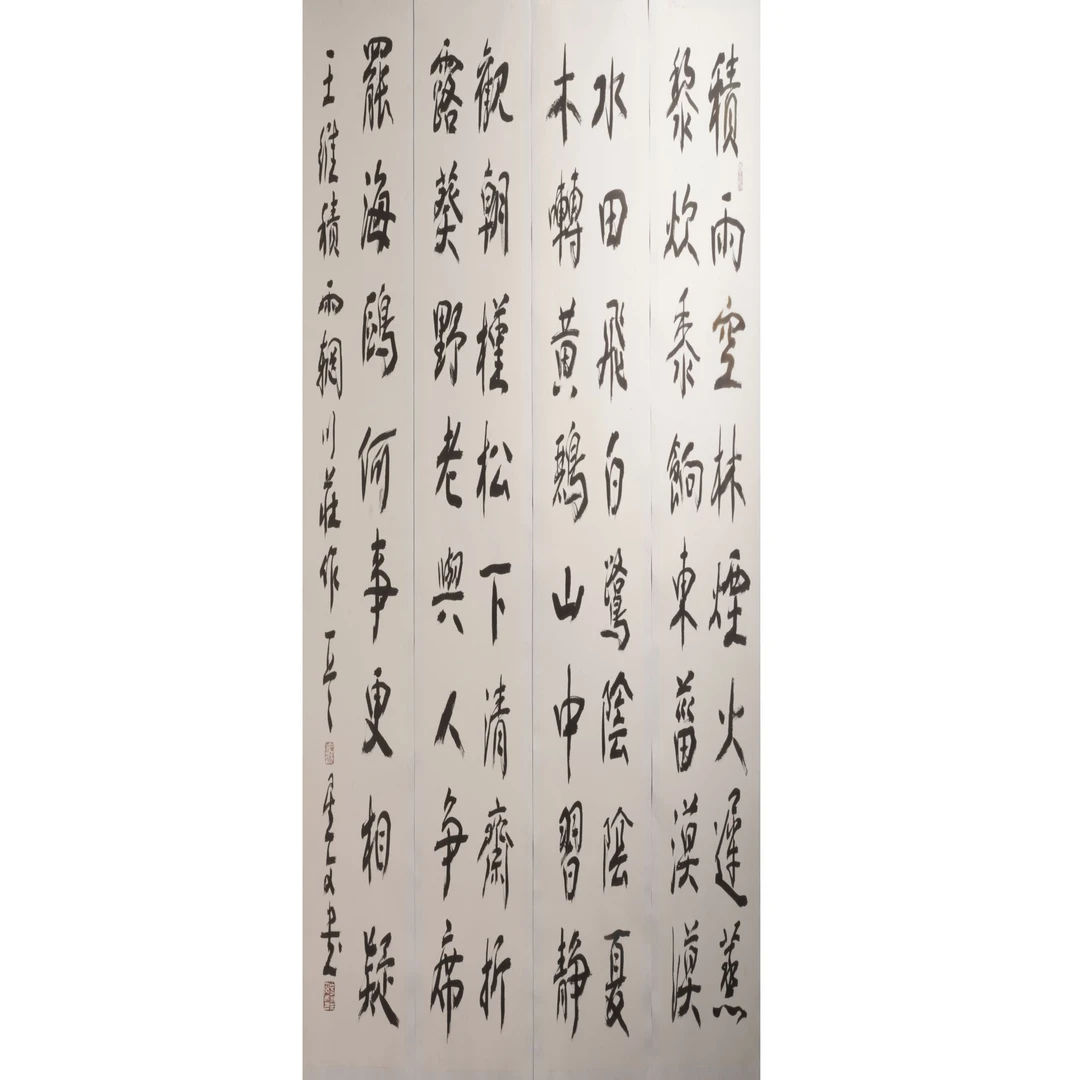 積雨空林煙火遲蒸
黎炊黍餉東菑漠漠
水田飛白鷺陰陰夏
木囀黄鸝山中習静
觀朝槿松下清齋折
露葵野老與人争席
罷海鷗何事更相疑
王維積雨輞川莊作